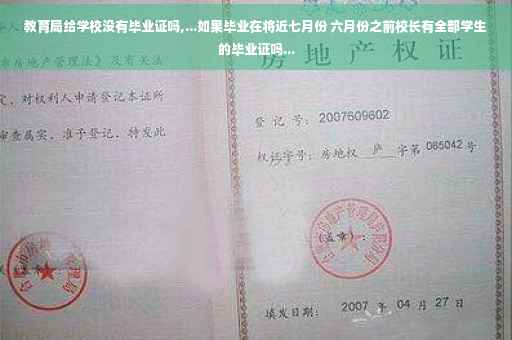 教育局给学校没有毕业证吗,...如果毕业在将近七月份 六月份之前校长有全部学生
的毕业证吗...
房地产管理法》及有关
定，对权利人申请登记本证所
审查属实，准予登记，特发此
房地产权
登记号：2007609602
权证字号：房地权 庐 字第 065042 号
(盖章)：
填发日期： 2007 年 04 月 27 日